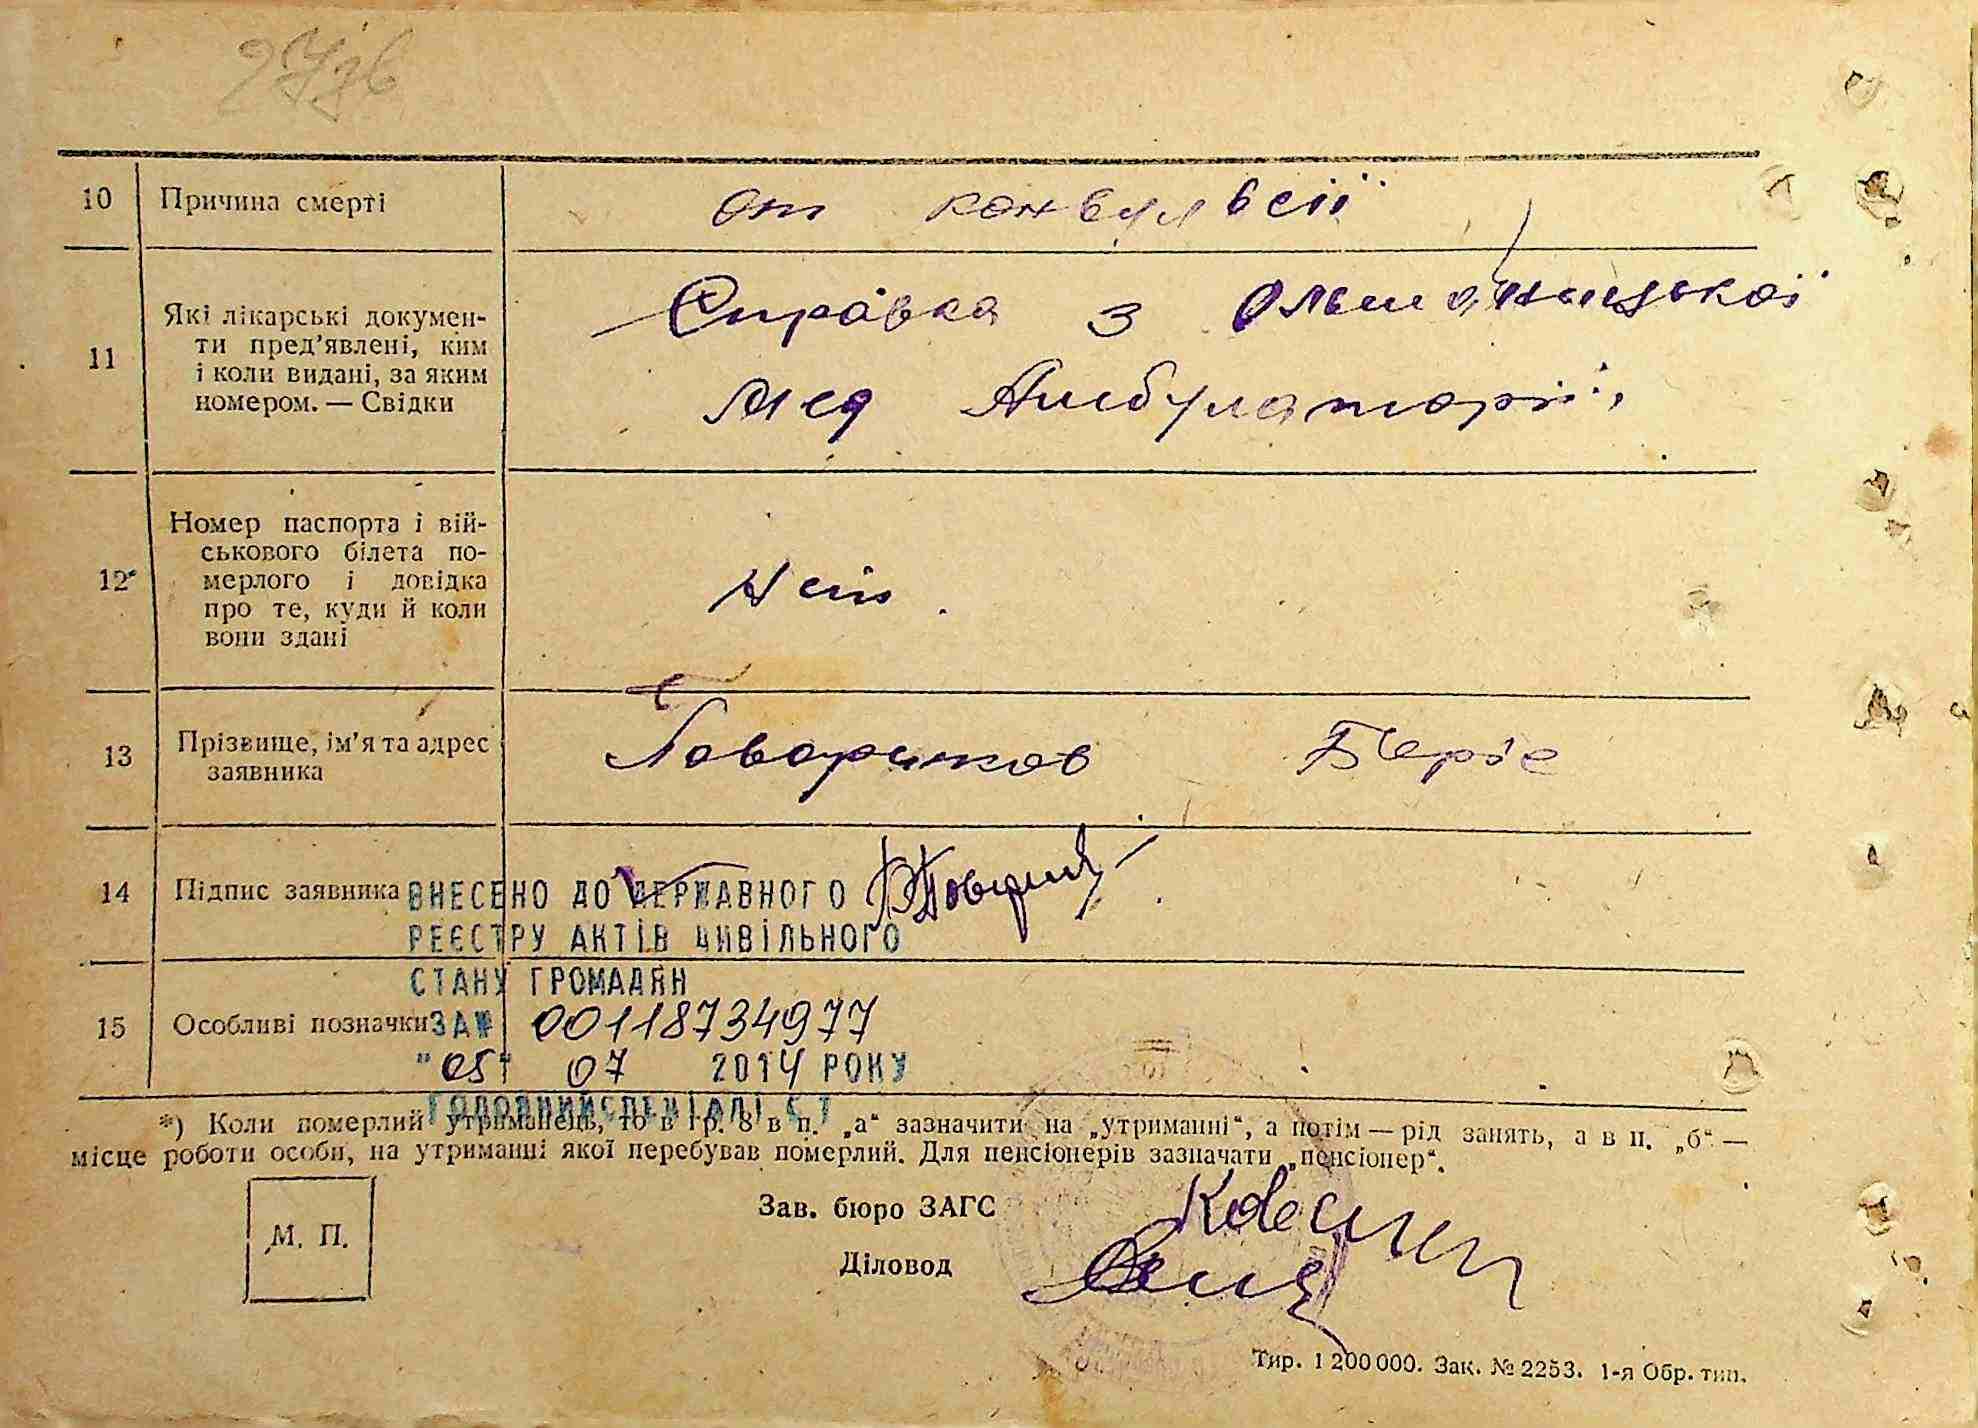 10 Причина смерті от конвульсії
11 Які лікарські докумен-
ти пред'явлені, ким
і коли видані, за яким
номером. — Свідки
Справка з
мед Амбулаторії,
12* Номер паспорта і вій-
ськового білета по-
мерлого і довідка
про те, куди й коли
вони здані
Нет.
13 Прізвище, ім'я та адрес
заявника
14 Підпис заявника
ВНЕСЕНО ДО ДЕРЖАВНОГО
РЕЄСТРУ АКТІВ ЦИВІЛЬНОГО
СТАНУ ГРОМАДЯН
15 Особливі позначки
ЗА № 00118734977
"05" 07 2014 РОКУ
ГОЛОВНИЙ СПЕЦІАЛІСТ
*) Коли померлий утриманець, то в гр. 8 в п. „а“ зазначити на „утриманні“, а потім — рід занять, а в п. „б“ —
місце роботи особи, на утриманні якої перебував померлий. Для пенсіонерів зазначати „пенсіонер“.
М. П.
Зав. бюро ЗАГС
Діловод
Тир. 1 200 000. Зак. № 2253. 1-я Обр. тип.